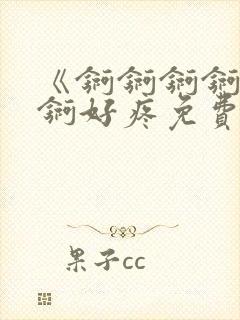 《锕锕锕锕
锕好疼免費
果子cc